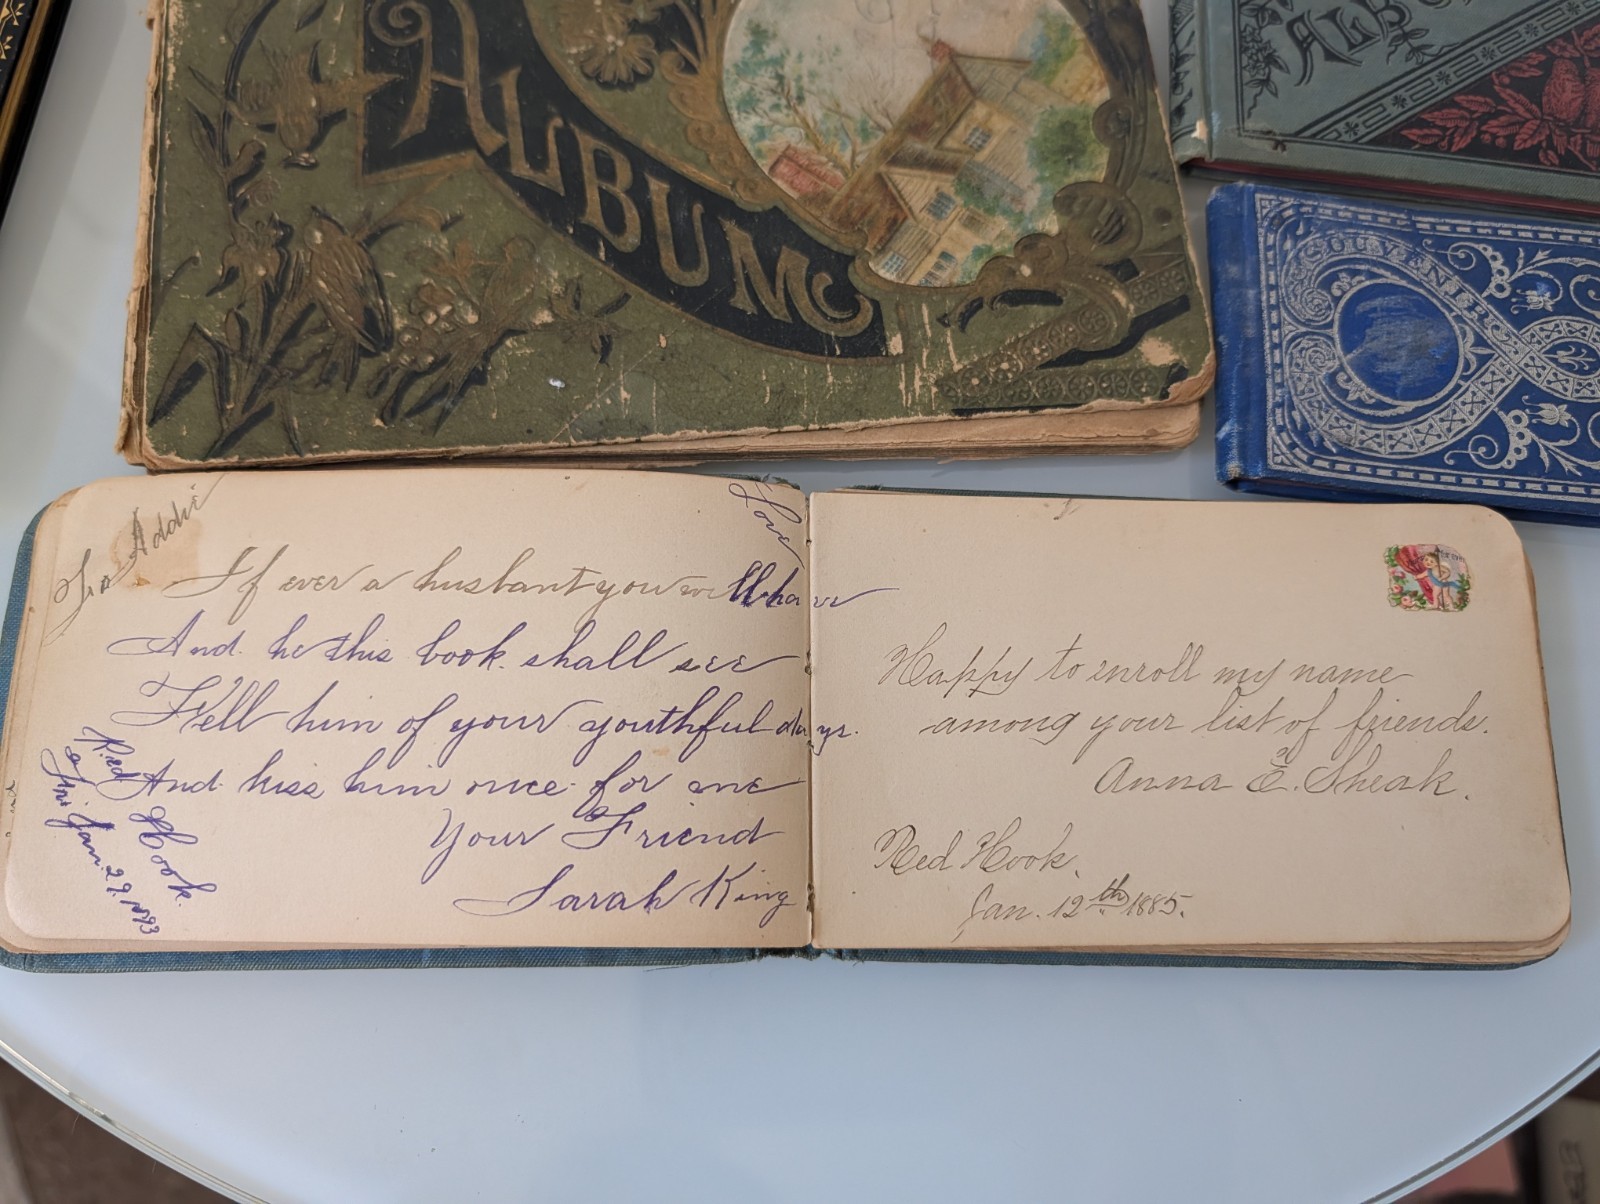 ALBUM
ALBU
SOUVENIRS
To Addie
Love
If ever a husbant you will have
And he this book shall see
Tell him of your youthful days.
And kiss him once for me
Your Friend
Sarah King
Red Hook.
Jan 29. 1893
Happy to enroll my name
among your list of friends.
Anna E. Sheak.
Red Hook.
Jan. 12th 1885.